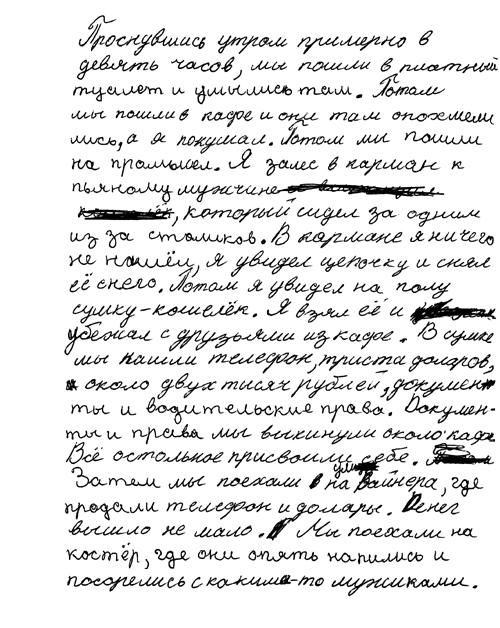 Проснувшись утром примерно в
девять часов, мы пошли в платный
туалет и умылись там. Потом
мы пошли в кафе и они там опохмели
лись, а я покушал. Потом мы пошли
на промысел. Я залес в карман к
пьяному мужчине
, который сидел за одним
из за столиков. В кармане я ничего
не нашёл, я увидел цепочку и снял
её снего. Потом я увидел на полу
сумку-кошелёк. Я взял её и
убежал с друзьями из кафе. В сумке
мы нашли телефон, триста доларов,
около двух тисяч рублей, докумен
ты и водительские права. Докумен-
ты и права мы выкинули около кафе
Всё остольное присвоили себе.
Затем мы поехали на улицу Вайнера, где
продали телефон и долары. Денег
вышло не мало. Мы поехали на
костёр, где они опять напились и
посорелись с какими-то мужиками.